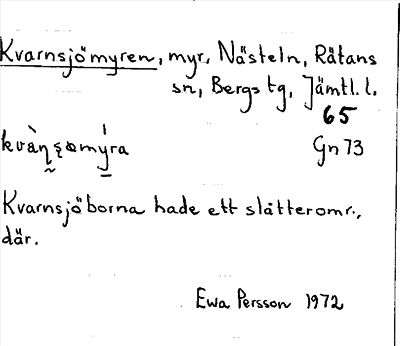 Kvarnsjömyren, myr, Nästeln, Rätans
sn, Bergs tg, Jämtl. l.
65
Gn 73
Kvarnsjöborna hade ett slåtteromr.,
där.
Ewa Persson 1972